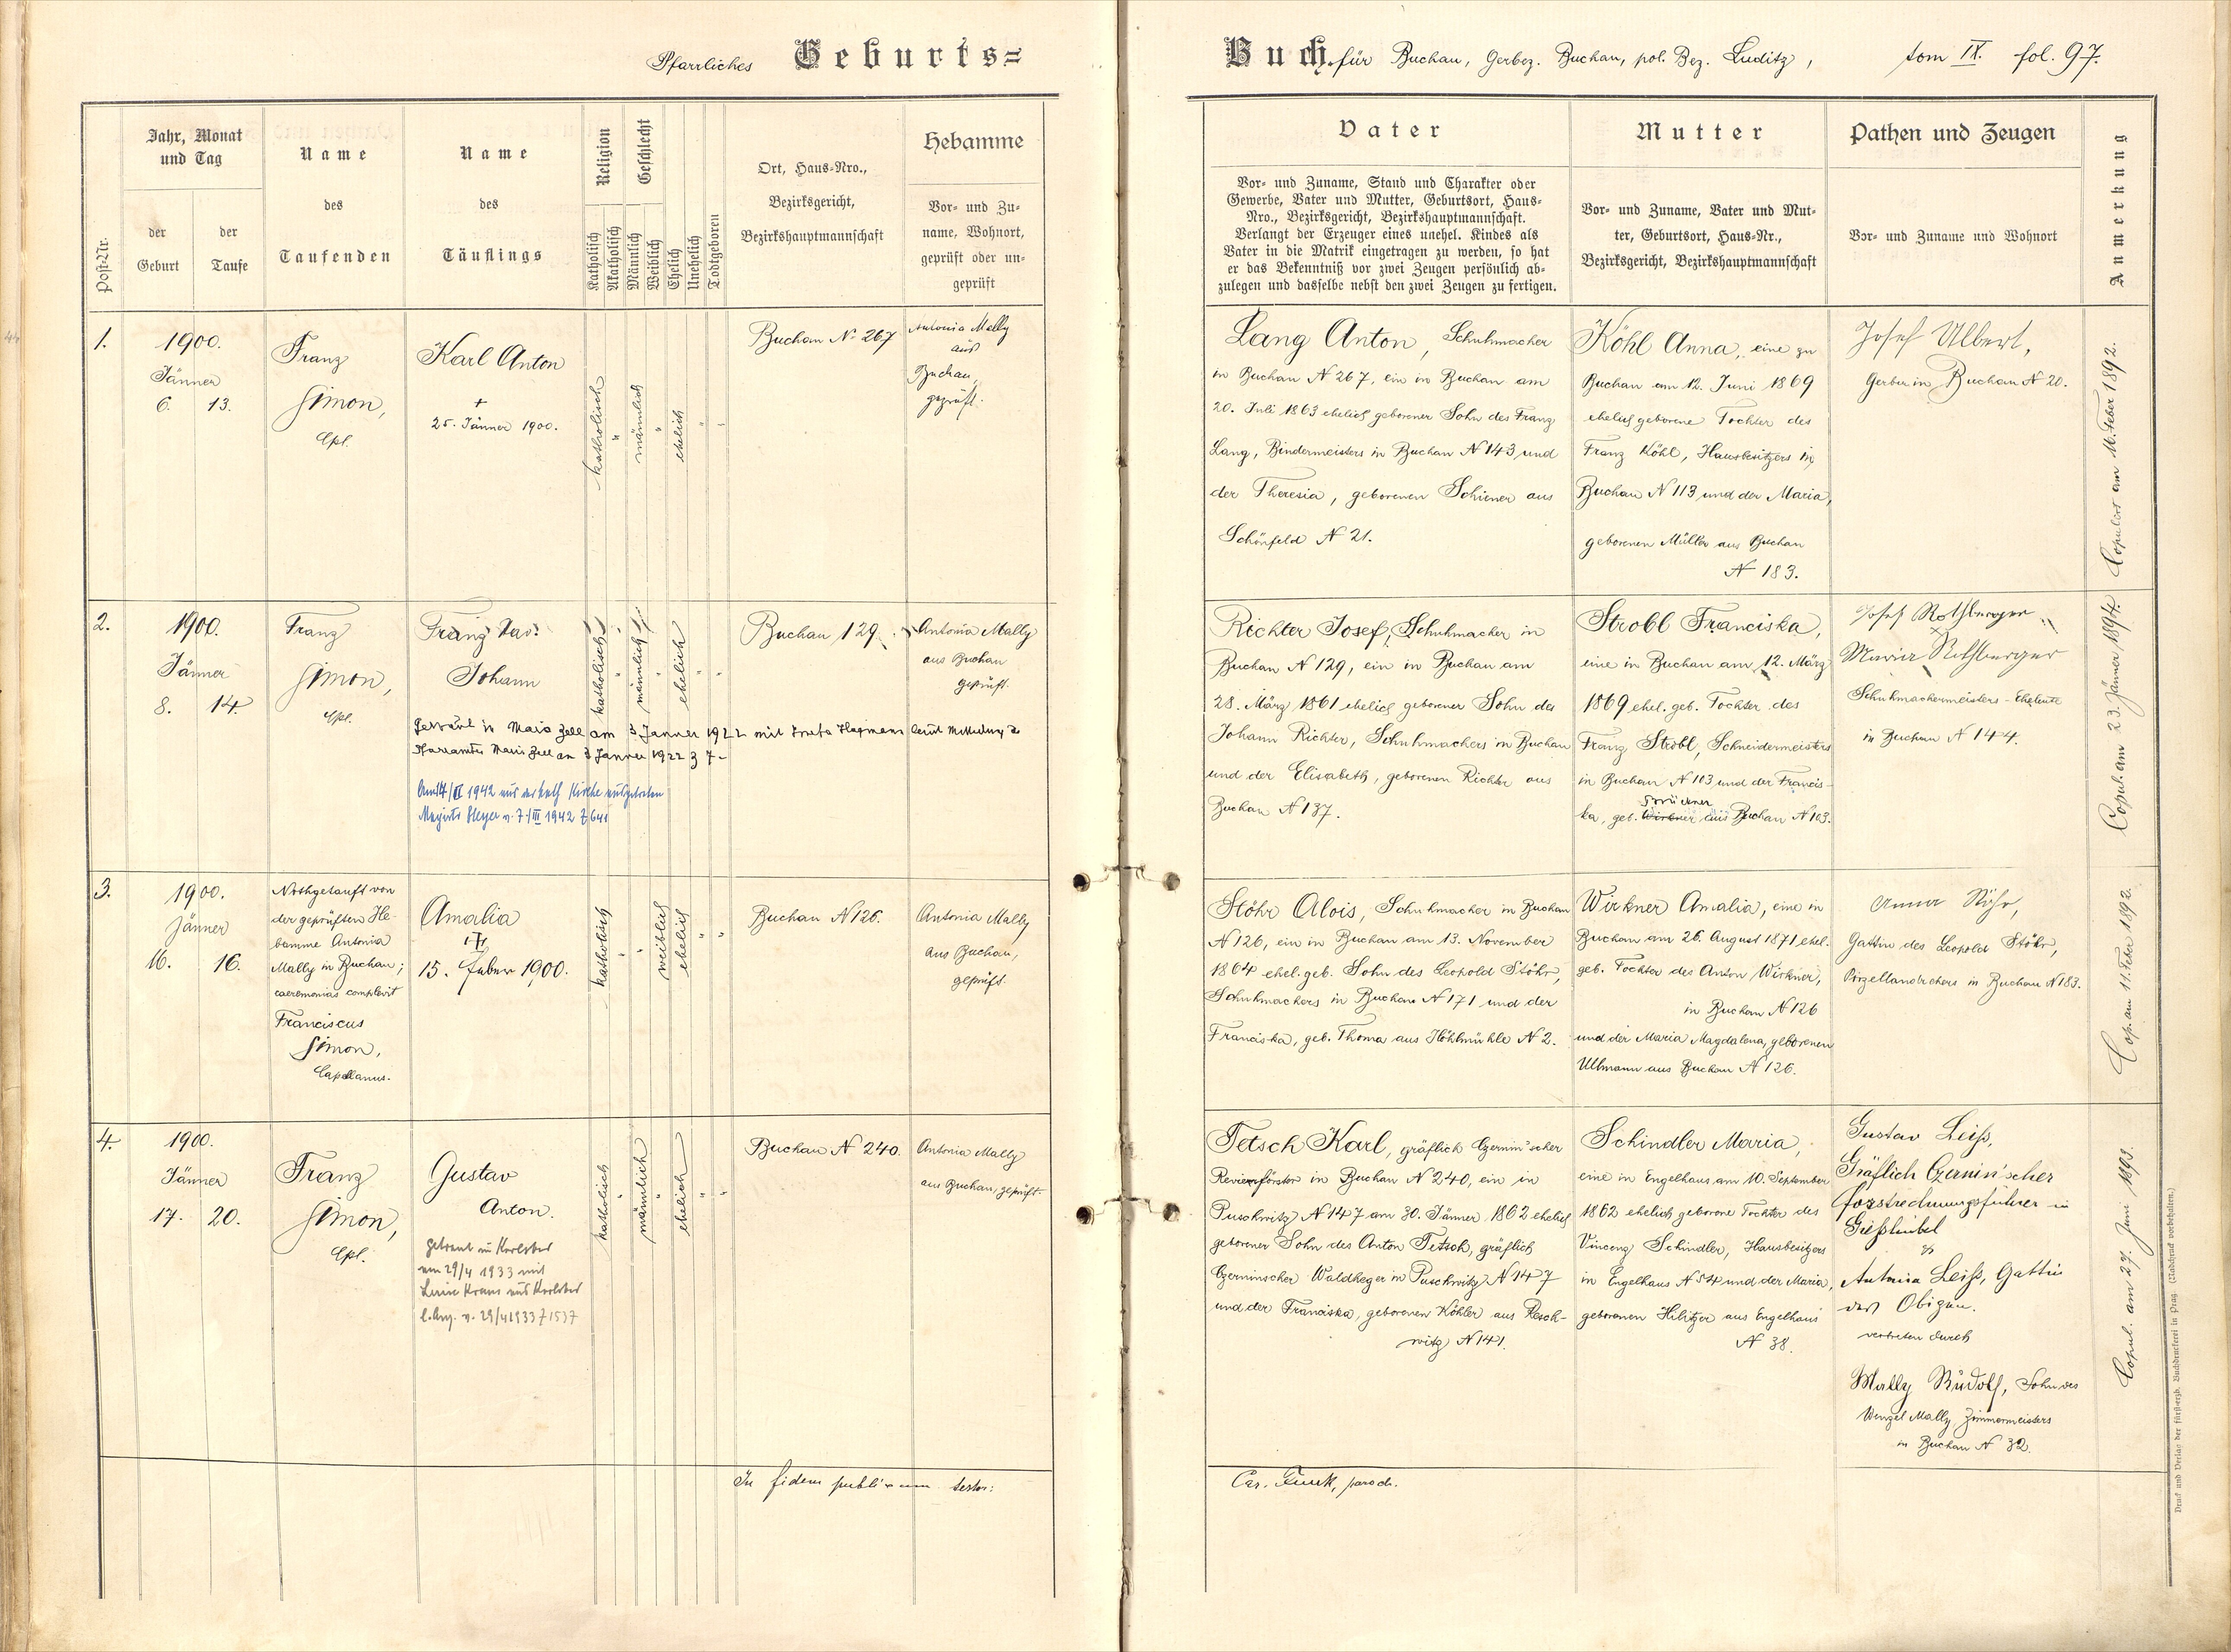 Pfarrliches Geburts=
Buch für Buchau, Gerbez. Buchau, pol. Bez. Luditz, tom IX. fol. 97.
Post-Nr.
Jahr, Monat
und Tag
der
Geburt
der
Taufe
Name
des
Taufenden
Name
des
Täuflings
Religion
Katholisch
Akatholisch
Geschlecht
Männlich
Weiblich
Ehelich
Unehelich
Todtgeboren
Ort, Haus=Nro.,
Bezirksgericht,
Bezirkshauptmannschaft
Hebamme
Vor= und Zu=
name, Wohnort,
geprüft oder un=
geprüft
Vater
Vor= und Zuname, Stand und Charakter oder
Gewerbe, Vater und Mutter, Geburtsort, Haus=
Nro., Bezirksgericht, Bezirkshauptmannschaft.
Verlangt der Erzeuger eines unehel. Kindes als
Vater in die Matrik eingetragen zu werden, so hat
er das Bekenntniß vor zwei Zeugen persönlich ab=
zulegen und dasselbe nebst den zwei Zeugen zu fertigen.
Mutter
Vor= und Zuname, Vater und Mut=
ter, Geburtsort, Haus=Nr.,
Bezirksgericht, Bezirkshauptmannschaft
Pathen und Zeugen
Vor= und Zuname und Wohnort
Anmerkung
1.
1900.
Jänner
6. 13.
Franz
Simon,
Cpl.
Karl Anton
+
25. Jänner 1900.
katholisch
"
männlich
"
ehelich
" "
Buchau N 267
Antonia Mally
aus
Buchau,
geprüft.
Lang Anton, Schuhmacher
in Buchau N 267, ein in Buchau am
20. Juli 1863 ehelich geborener Sohn des Franz
Lang, Bindermeisters in Buchau N 143 und
der Theresia, geborenen Schiener aus
Schönfeld N 21.
Köhl Anna, eine zu
Buchau am 12. Juni 1869
ehelich geborene Tochter des
Franz Köhl, Hausbesitzers in
Buchau N 113 und der Maria,
geborenen Müller aus Buchau
N 183.
Josef Ulbert,
Gerber in Buchau N 20.
Copuliert am 16. Feber 1892.
2.
1900.
Jänner
8. 14.
Franz
Simon,
Cpl.
Franz Xav.
Johann
Getraut in Maria Zell am 3 Jänner 1922 mit Josefa Hagmann laut Mitteilung d
Pfarramtes Maria Zell am 3 Jänner 1922 Z 7-
Am 14/II 1942 aus der kath Kirche ausgetreten
v. 7./III 1942 Z 641
katholisch
"
männlich
"
ehelich
" "
Buchau 129.
Antonia Mally
aus Buchau
geprüft.
Richter Josef, Schuhmacher in
Buchau N 129, ein in Buchau am
28. März 1861 ehelich geborener Sohn des
Johann Richter, Schuhmachers in Buchau
und der Elisabeth, geborenen Richter aus
Buchau N 137.
Strobl Franciska,
eine in Buchau am 12. März
1869 ehel. geb. Tochter des
Franz Strobl, Schneidermeisters
in Buchau N 103 und der Francis-
Brückner
ka, geb. Wirkner aus Buchau N 103.
Josef Rothberger
Maria Rothberger
Schuhmachermeisters-Eheleute
in Buchau N 144.
Copul. am 23. Jänner 1894.
3.
1900.
Jänner
16. 16.
Nothgetauft von
der geprüften He-
bamme Antonia
Mally in Buchau;
caeremonias complevit
Franciscus
Simon,
Capellanus.
Amalia
+
15. Feber 1900.
katholisch
" "
weiblich
ehelich
" "
Buchau N 126.
Antonia Mally
aus Buchau,
geprüft.
Stöhr Alois, Schuhmacher in Buchau
N 126, ein in Buchau am 13. November
1864 ehel. geb. Sohn des Leopold Stöhr,
Schuhmachers in Buchau N 171 und der
Franciska, geb. Thoma aus Höhlmühle N 2.
Wirkner Amalia, eine in
Buchau am 26. August 1871 ehel.
geb. Tochter des Anton Wirkner,
in Buchau N 126
und der Maria Magdalena, geborenen
Ullmann aus Buchau N 126.
Anna Stöhr,
Gattin des Leopold Stöhr,
Porzellandrehers in Buchau N 183.
Cop. am 11. Feber 1892.
4.
1900.
Jänner
17. 20.
Franz
Simon,
Cpl.
Gustav
Anton.
getraut in Karlsbad
am 29/4 1933 mit
Kraus aus Karlsbad
v. 29/4 1933 Z 1537
katholisch
"
männlich
"
ehelich
" "
Buchau N 240.
Antonia Mally
aus Buchau, geprüft.
Tetsch Karl, gräflich Czernin'scher
Revierförster in Buchau N 240, ein in
Puschwitz N 147 am 30. Jänner 1862 ehelich
geborener Sohn des Anton Tetsch, gräflich
Czerninscher Waldheger in Puschwitz N 147
und der Franciska, geborenen Köhler aus Resch-
witz N 141.
Schindler Maria,
eine in Engelhaus am 10. September
1862 ehelich geborene Tochter des
Vincenz Schindler, Hausbesitzers
in Engelhaus N 54 und der Maria,
geborenen Hilitzer aus Engelhaus
N 38.
Gustav Leiß,
Gräflich Czernin'scher
Forstrechnungsführer in
Gießhübel
&
Antonia Leiß, Gattin
des Obigen.
vertreten durch
Mally Rudolf, Sohn des
Wenzel Mally, Zimmermeisters
in Buchau N 32.
Copul. am 27. Juni 1893.
In fidem publicam testor:
Car. paroch.
Druck und Verlag der fürst-erzb. Buchdruckerei in Prag. (Nachdruck vorbehalten.)